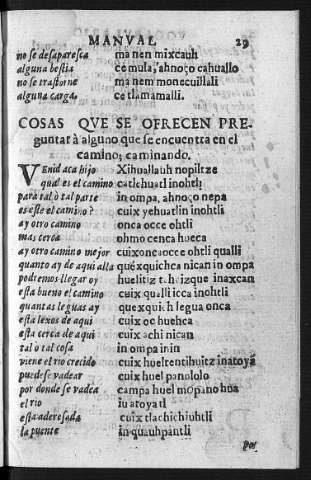 MANVAL 29
no se desaparesca ma nen mixcauh
alguna bestia ce mula, ahnoço cahuallo
no se trastorne ma nem monecuillali
alguna carga. ce tlamamalli.
COSAS QVE SE OFRECEN PRE-
guntar à alguno que se encuentra en el
camino; caminando.
VEnid aca hijo Xihuallauh nopiltze
qual es el camino catlehuatl inohtli
para tal ò tal parte in ompa, ahnoço nepa
es este el camino? cuix yehuatlin inohtli
ay otro camino onca occe ohtli
mas cerca ohmo cenca hueca
ay otro camino mejor cuix oncaocce ohtli qualli
quanto ay de aqui alla quéxquichca nican in ompa
podremos llegar oy huelitiz inaxcan
esta bueno el camino cuix qualli icca inohtli
quantas leguas ay quexquich legua onca
està lexos de aqui cuix oc huehca
esta cerca de aqui cuix achi nican
tal ò tal cosa in ompa inin
viene el rio crecido cuix hueltentihuitz inatoya
puedese vadear cuix huel panololo
por donde se vadea campa huel mopano hua
el rio in atoyatl
està aderesada cuix tlachichiuhtli
la puente in quauhpantli
por